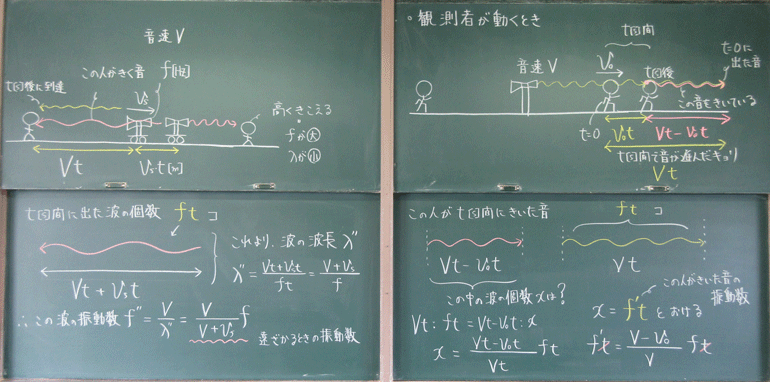 音速 V
この人がきく音 f[Hz]
t日後に到達
vs
高くきこえる
fが大
λが小
Vt
vst[m]
t日間に出た波の個数 ft コ
Vt + vst
これより、波の波長 λ"
λ" = (Vt+vst)/ft = (V+vs)/f
∴この波の振動数 f" = V/λ" = V/(V+vs) f
遠ざかるときの振動数
。観測者が動くとき
t日間
音速 V
vo
t日後
t=0に
出た音
この音をきいている
t=0
vot
Vt-vot
t日間で音が進んだキョリ
Vt
この人が t日間にきいた音
ft コ
Vt-vot
Vt
この中の波の個数xは?
この人がきいた音の
振動数
Vt : ft = Vt-vot : x
x = f't とおける
x = (Vt-vot)/Vt ft
f't = (V-vo)/V ft